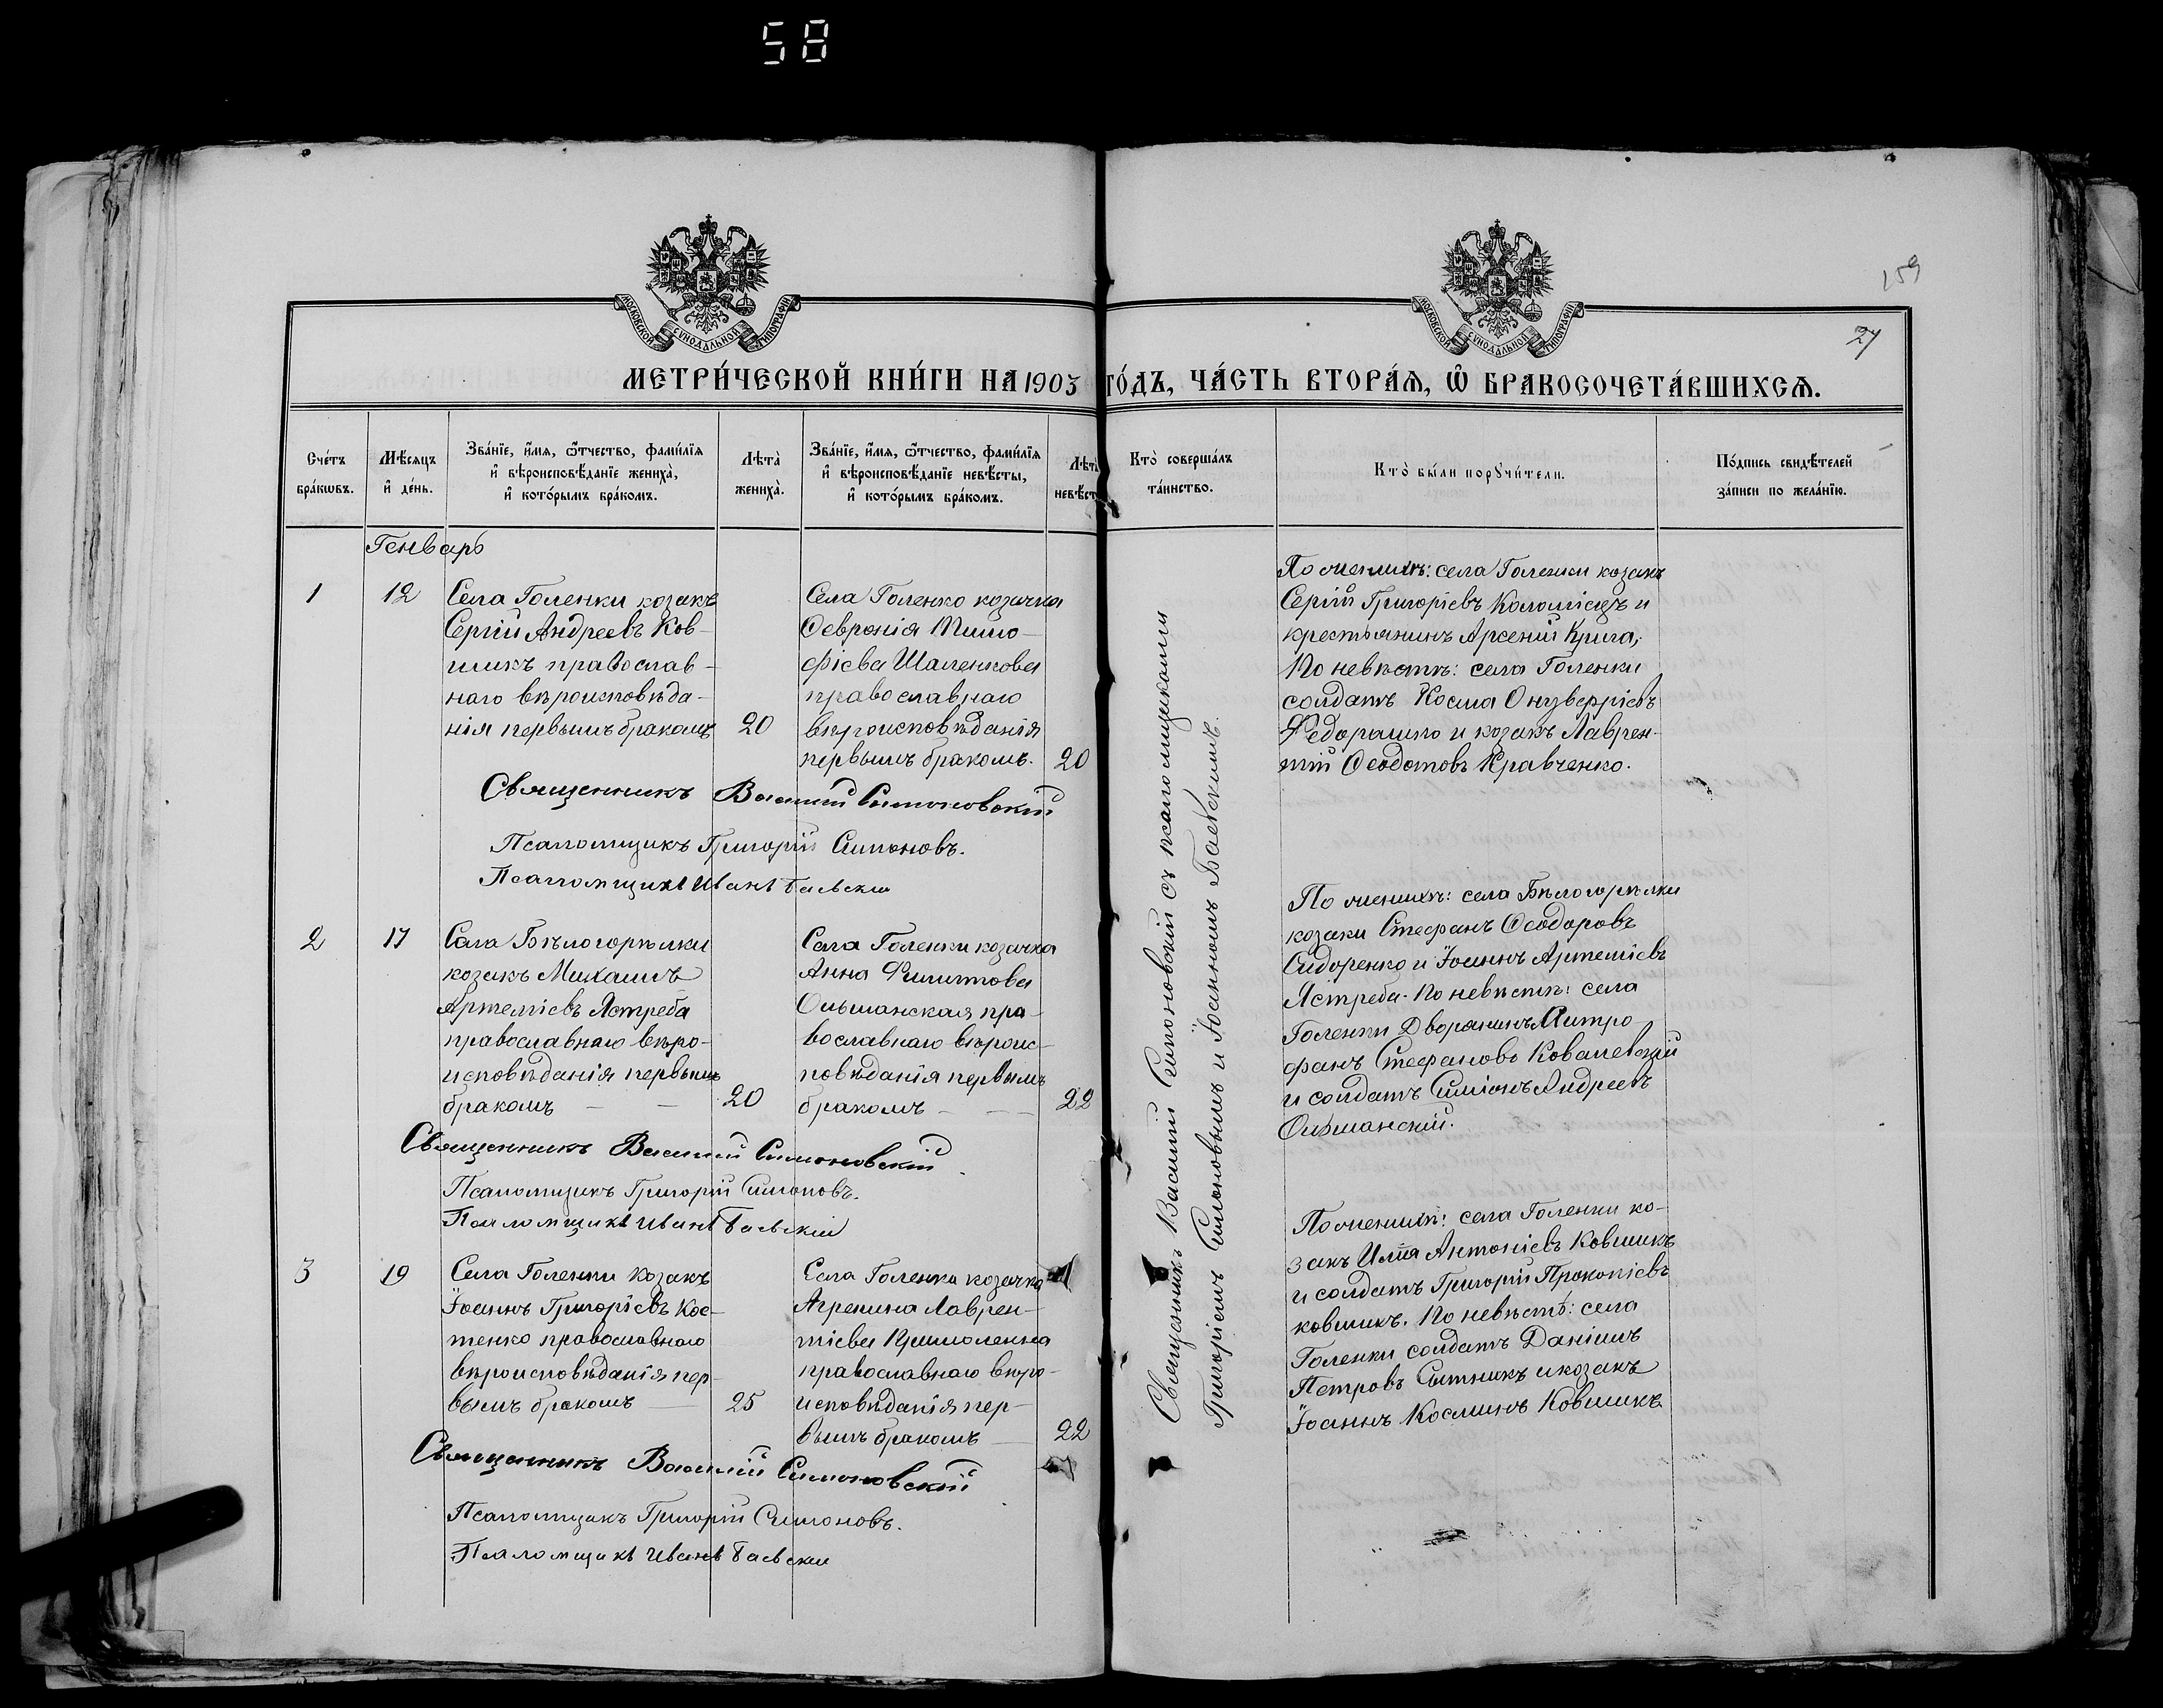 58
159
27
МОСКОВСКОЙ СѴНОДАЛЬНОЙ ТИПОГРАФІИ
МОСКОВСКОЙ СѴНОДАЛЬНОЙ ТИПОГРАФІИ
МЕТРИ́ЧЕСКОЙ КНИ́ГИ НА 1903 ГО́ДЪ, ЧА́СТЬ ВТОРА́Ѧ, Ѡ҆ БРАКОСОЧЕТА́ВШИХСѦ.
Сче́тъ бра́кѡвъ.
Мѣ́сѧцъ и҆ де́нь.
Зва́нїе, и҆́мѧ, ѻ҆́тчество, фами́лїѧ и҆ вѣроисповѣ́данїе жениха̀, и҆ кото́рымъ бра́комъ.
Лѣта̀ жениха̀.
Зва́нїе, и҆́мѧ, ѻ҆́тчество, фами́лїѧ и҆ вѣроисповѣ́данїе невѣ́сты, и҆ кото́рымъ бра́комъ.
Лѣта̀ невѣст
Кто̀ соверша́лъ та́инство.
Кто̀ бы́ли порꙋчи́тели.
По́дпись свидѣ́телей за́писи по жела́нїю.
Генварь
1
12
Села Голенки козакъ
Сергій Андреевъ Ков-
шикъ православ-
наго вѣроисповѣда-
нія первымъ бракомъ
20
Села Голенко козачка
Ѳевронія Тимо-
фіева Шаленкова
православнаго
вѣроисповѣданія
первымъ бракомъ.
20
Священникъ Василій Симоновскій съ псаломщиками
Григоріемъ Симоновымъ и Іоанномъ Баевскимъ.
По женихѣ: села Голенки козакъ
Сергій Григоріевъ Коломіецъ и
крестьянинъ Арсеній Крига;
По невѣстѣ: села Голенки
солдатъ Косма Онуверріевъ
Федорашко и козакъ Лаврен-
тій Ѳеодотовъ Кравченко.
Священникъ Василій Симоновскій
Псаломщикъ Григорій Симоновъ.
Псаломщикъ Иванъ Баевскій
2
17
Села Бѣлогорѣлки
козакъ Михаилъ
Артеміевъ Ястреба
православнаго вѣро-
исповѣданія первымъ
бракомъ
20
Села Голенки козачка
Анна Филиппова
Ольшанская пра-
вославнаго вѣроис-
повѣданія первымъ
бракомъ
22
По женихѣ: села Бѣлогорѣлки
козаки Стефанъ Ѳеодоровъ
Сидоренко и Іоаннъ Артеміевъ
Ястреба. По невѣстѣ: села
Голенки Дворянинъ Митро
фанъ Стефановъ Ковалевскій
и солдатъ Симіонъ Андреевъ
Ольшанскій.
Священникъ Василій Симоновскій
Псаломщикъ Григорій Симоновъ.
Псаломщикъ Иванъ Баевскій
3
19
Села Голенки козакъ
Іоаннъ Григоріевъ Кос-
тенко православнаго
вѣроисповѣданія пер-
вымъ бракомъ
25
Села Голенка козачка
Агрепина Лаврен-
тіева
православнаго вѣро-
исповѣданія пер-
вымъ бракомъ
22
По женихѣ: села Голенки ко-
закъ Илія Антоніевъ Ковшикъ
и солдатъ Григорій Прокопіевъ
Ковшикъ. По невѣстѣ: села
Голенки солдатъ Даніилъ
Петровъ Ситникъ и козакъ
Іоаннъ Косминъ Ковшикъ
Священникъ Василій Симоновскій
Псаломщикъ Григорій Симоновъ.
Псаломщикъ Иванъ Баевскій